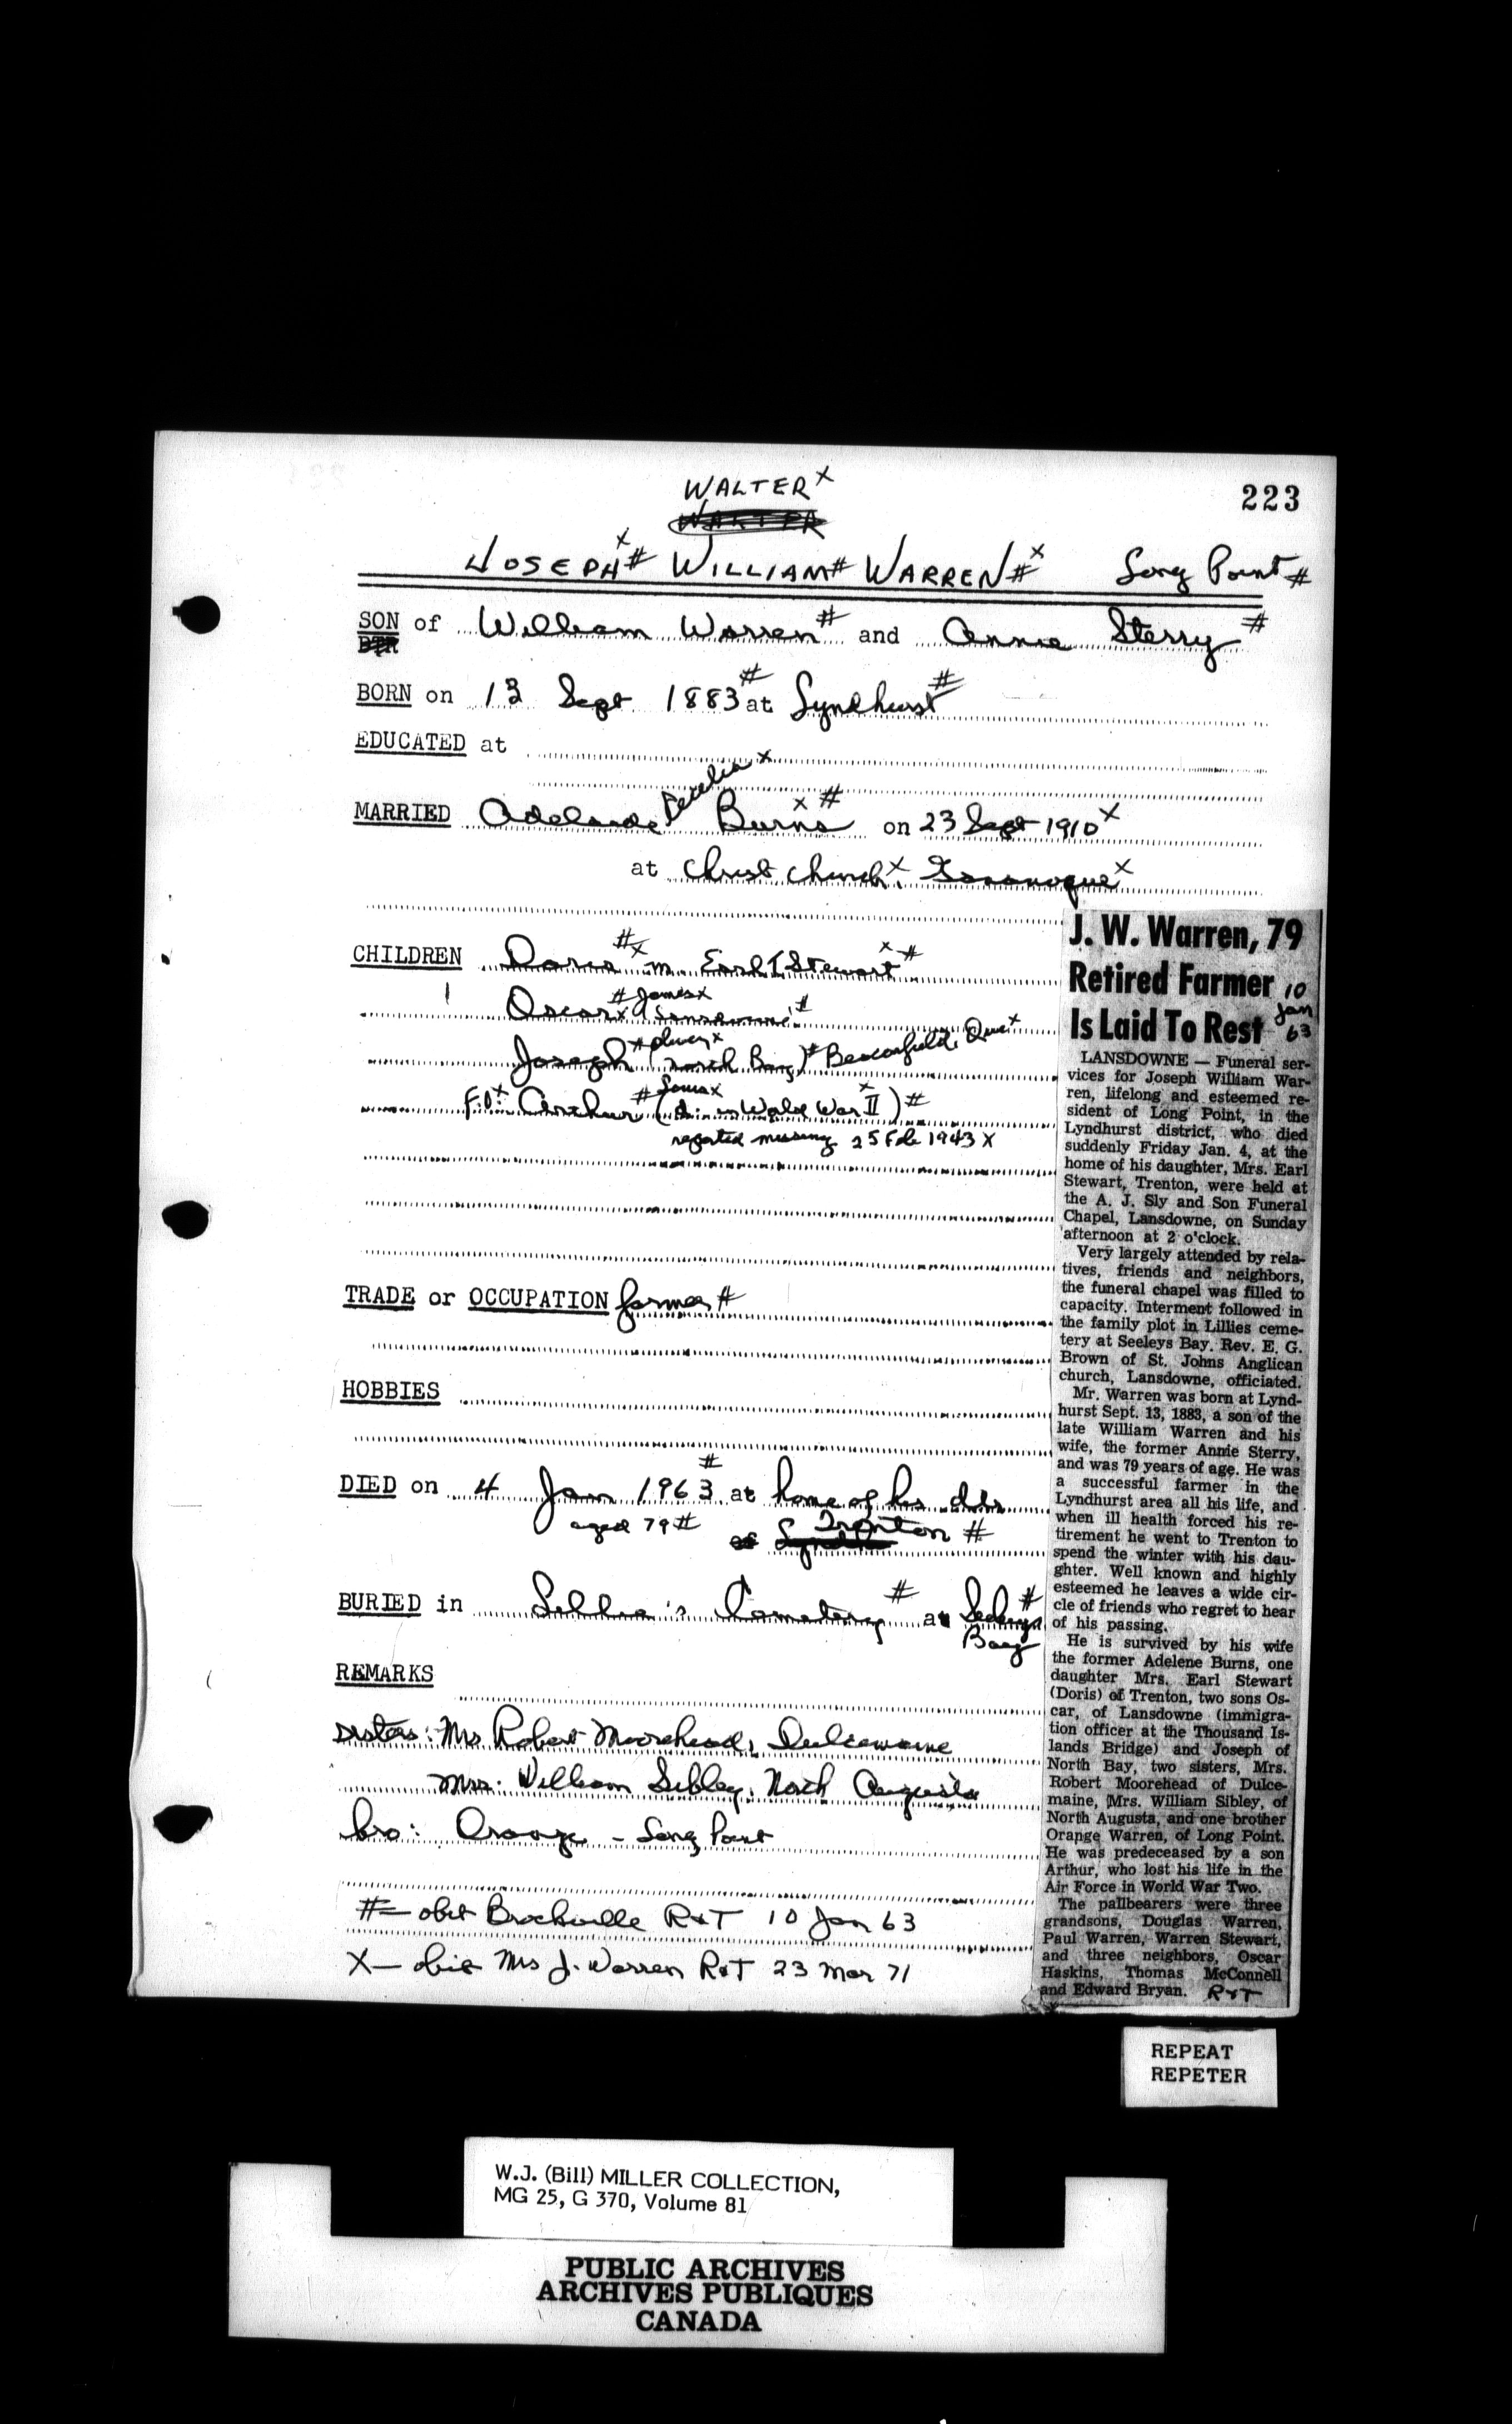 WALTER x
223
JOSEPH x # WILLIAM # WARREN x # Long Point #
SON of William Warren # and Annie Sterry #
BORN on 13 Sept 1883 # at Lyndhurst #
EDUCATED at
MARRIED Adelaide x Burns x # on 23 Sept 1910 x
at Christ Church x, Gananoque x
CHILDREN Doris # x m. Earl I Stewart x #
Oscar # x James x (Lansdowne) #
Joseph # Oliver x (North Bay) # Beaconsfield, Que x
F.O. x Arthur # Louis x (d. in World War II x) #
reported missing 25 Feb 1943 x
TRADE or OCCUPATION farmer #
HOBBIES
DIED on 4 Jan 1963 # at home of his dtr
aged 79 # Trenton #
BURIED in Lillie's Cemetery # at Seeleys #
Bay
REMARKS
sisters: Mrs Robert Moorehead, Dulcemaine
Mrs. William Sibley, North Augusta
bro: Orange - Long Point
# = obit Brockville R&T 10 Jan 63
X - obit Mrs J. Warren R&T 23 Mar 71
J. W. Warren, 79
Retired Farmer
Is Laid To Rest
10
Jan
63
LANSDOWNE — Funeral ser-
vices for Joseph William War-
ren, lifelong and esteemed re-
sident of Long Point, in the
Lyndhurst district, who died
suddenly Friday Jan. 4, at the
home of his daughter, Mrs. Earl
Stewart, Trenton, were held at
the A. J. Sly and Son Funeral
Chapel, Lansdowne, on Sunday
afternoon at 2 o'clock.
Very largely attended by rela-
tives, friends and neighbors,
the funeral chapel was filled to
capacity. Interment followed in
the family plot in Lillies ceme-
tery at Seeleys Bay. Rev. E. G.
Brown of St. Johns Anglican
church, Lansdowne, officiated.
Mr. Warren was born at Lynd-
hurst Sept. 13, 1883, a son of the
late William Warren and his
wife, the former Annie Sterry,
and was 79 years of age. He was
a successful farmer in the
Lyndhurst area all his life, and
when ill health forced his re-
tirement he went to Trenton to
spend the winter with his dau-
ghter. Well known and highly
esteemed he leaves a wide cir-
cle of friends who regret to hear
of his passing.
He is survived by his wife
the former Adelene Burns, one
daughter Mrs. Earl Stewart
(Doris) of Trenton, two sons Os-
car, of Lansdowne (immigra-
tion officer at the Thousand Is-
lands Bridge) and Joseph of
North Bay, two sisters, Mrs.
Robert Moorehead of Dulce-
maine, Mrs. William Sibley, of
North Augusta, and one brother
Orange Warren, of Long Point.
He was predeceased by a son
Arthur, who lost his life in the
Air Force in World War Two.
The pallbearers were three
grandsons, Douglas Warren,
Paul Warren, Warren Stewart,
and three neighbors, Oscar
Haskins, Thomas McConnell
and Edward Bryan. R&T
REPEAT
REPETER
W.J. (Bill) MILLER COLLECTION,
MG 25, G 370, Volume 81
PUBLIC ARCHIVES
ARCHIVES PUBLIQUES
CANADA